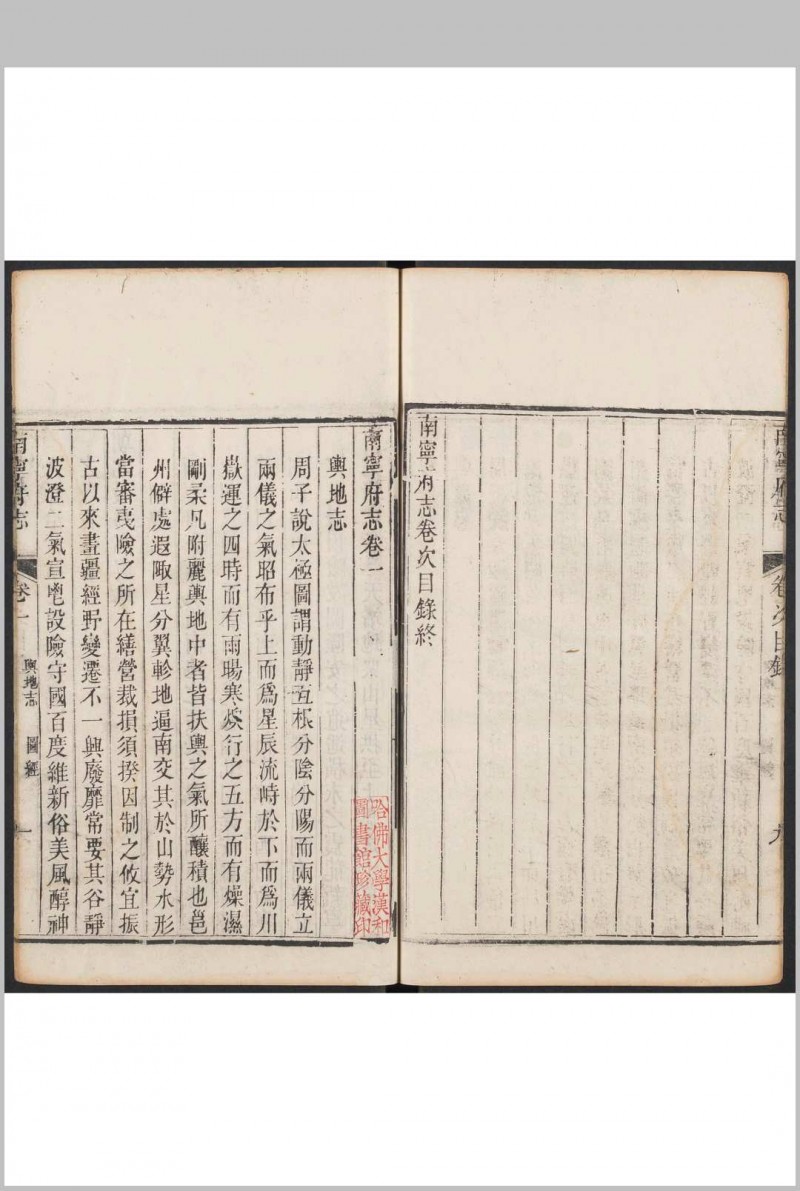 南寧府志 卷次目錄 九
南寧府志卷次目錄終
南寧府志卷一
輿地志
周子說太極圖謂動靜互根分陰分陽而兩儀立
兩儀之氣昭布乎上而爲星辰流峙於下而爲川
嶽運之四時而有雨暘寒燠行之五方而有燥濕
剛柔凡附麗輿地中者皆扶輿之氣所釀積也邕
州僻處遐陬星分翼軫地逼南交其於山勢水形
當審夷險之所在繕營裁損須揆因制之攸宜振
古以來畫疆經野變遷不一興廢靡常要其谷靜
波澄二氣宣鬯設險守國百度維新俗美風醇神
南寧府志 卷一 輿地志 圖經 一
哈佛大學漢和
圖書館珍藏印